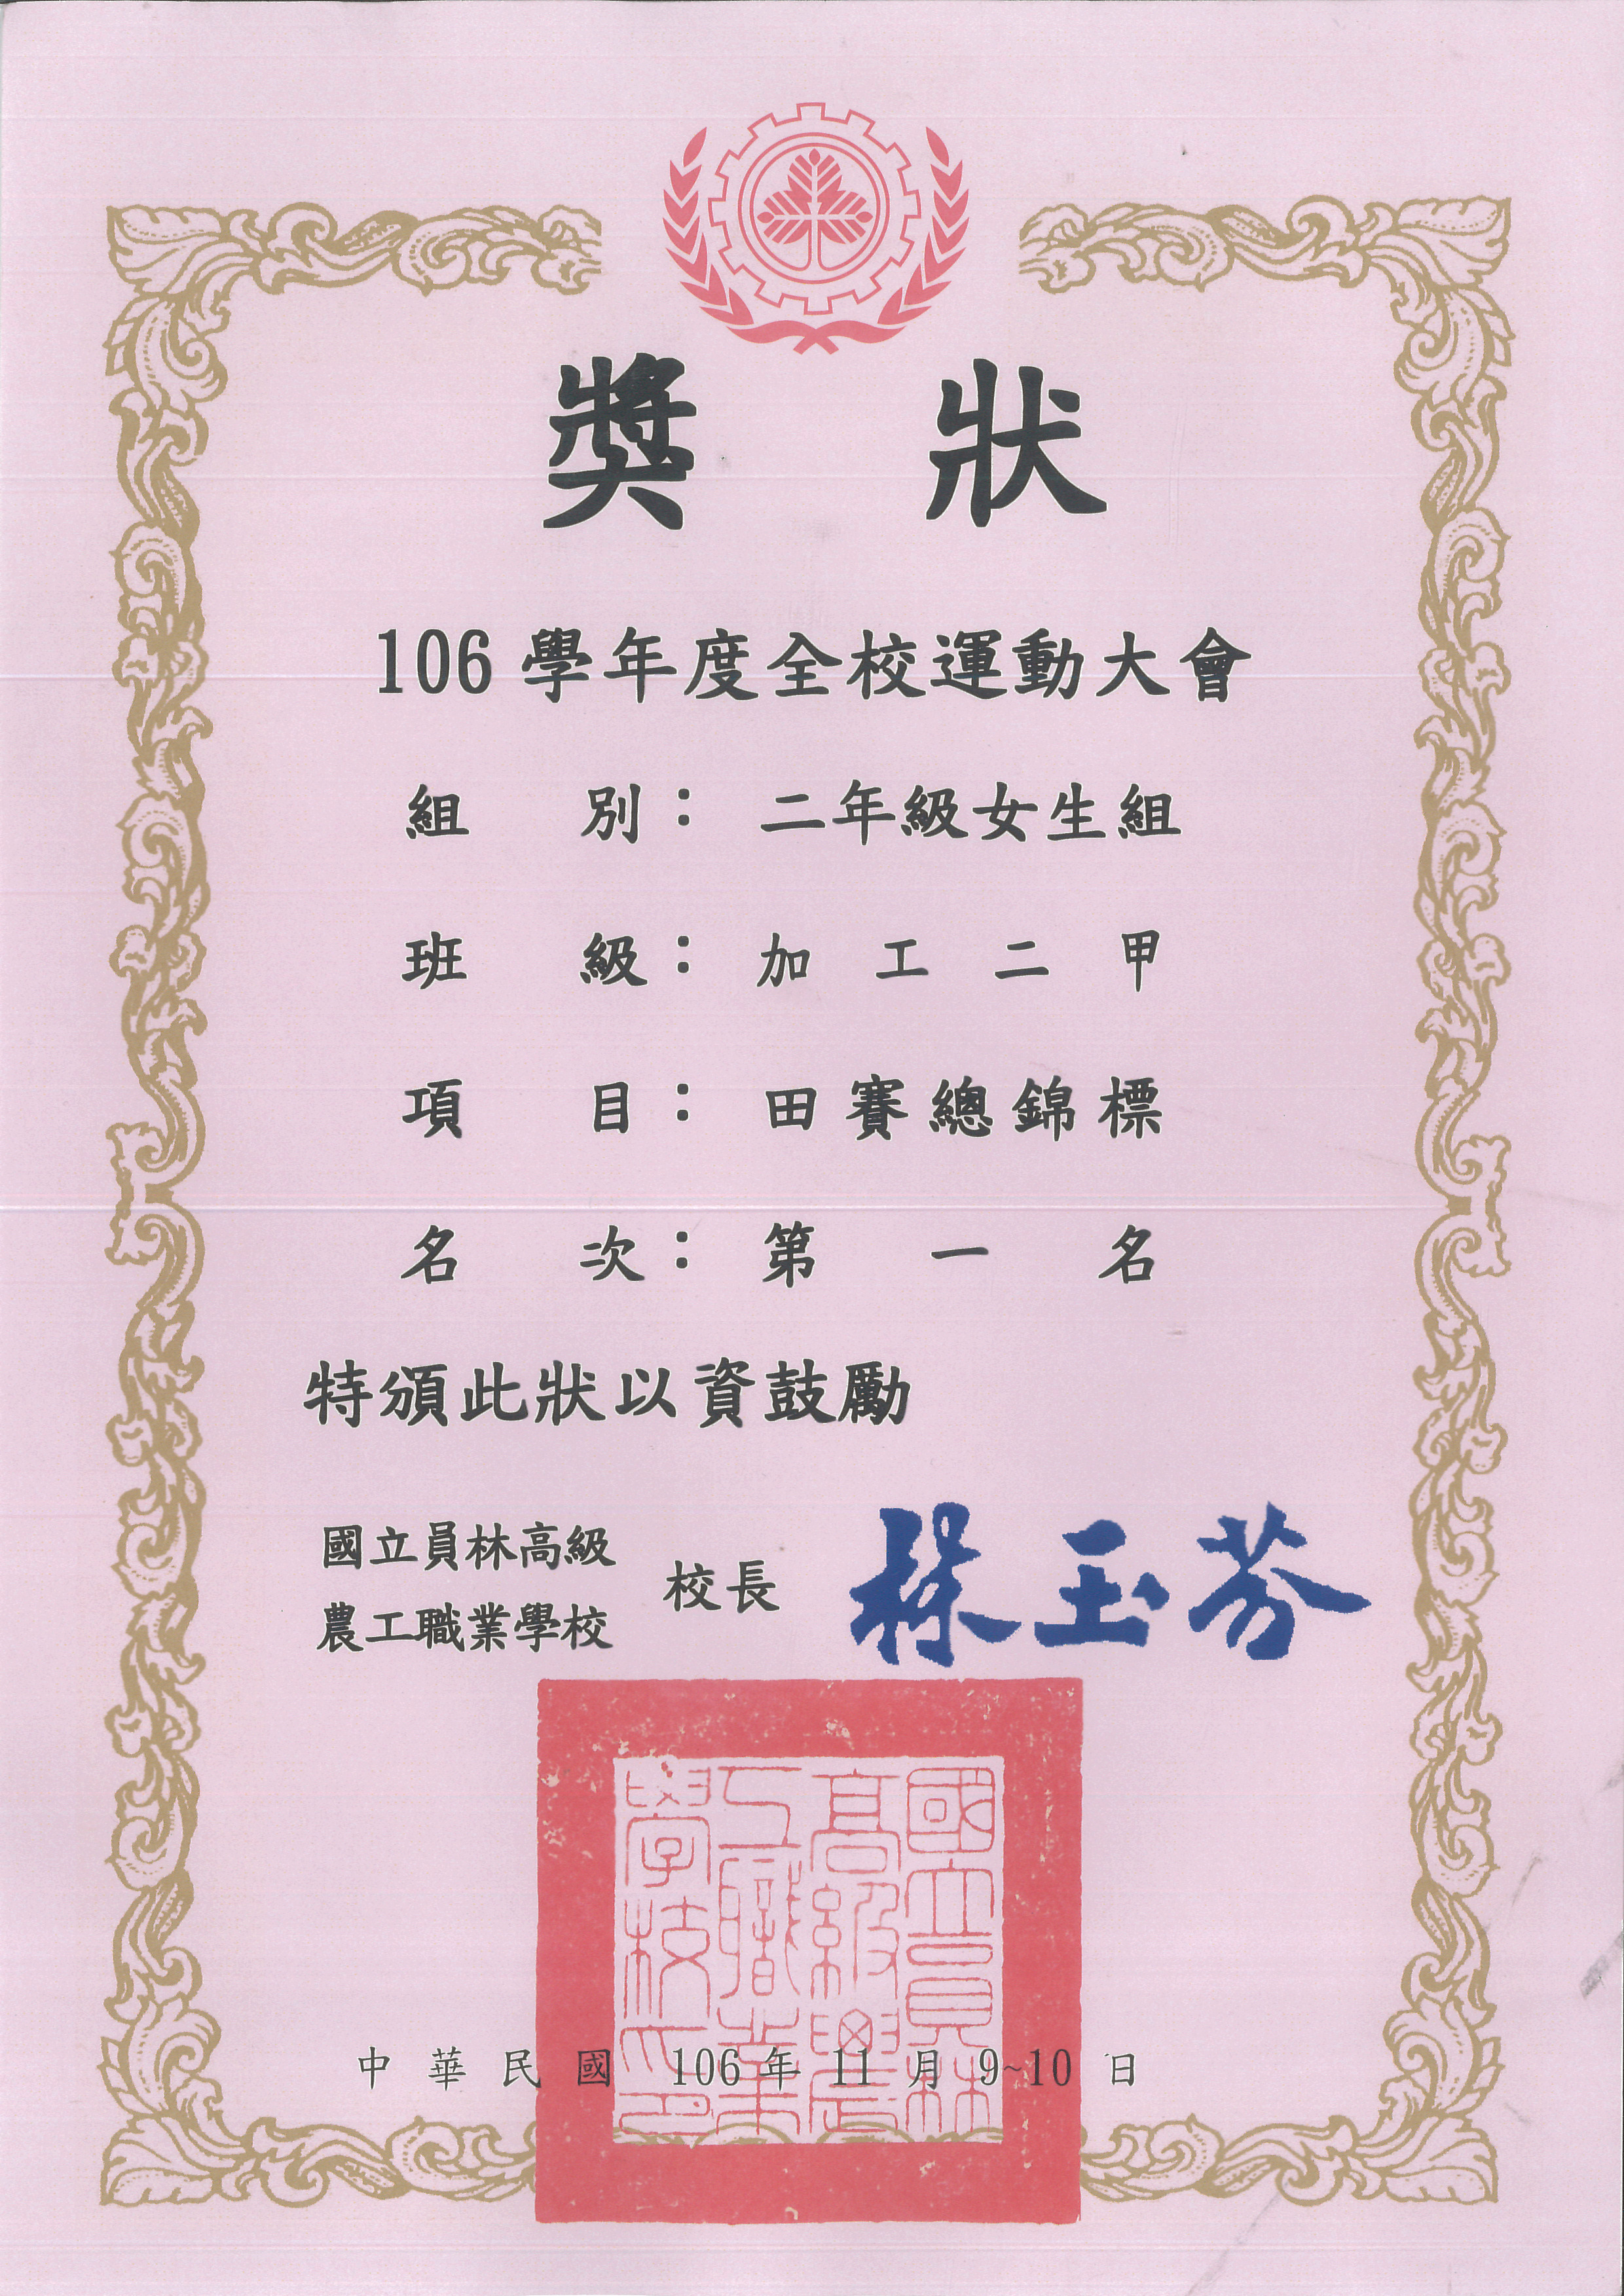 獎狀
106學年度全校運動大會
組別：二年級女生組
班級：加工二甲
項目：田賽總錦標
名次：第一名
特頒此狀以資鼓勵
國立員林高級
農工職業學校
校長 林玉芬
國立員林高級農工職業學校印
中華民國106年11月9~10日